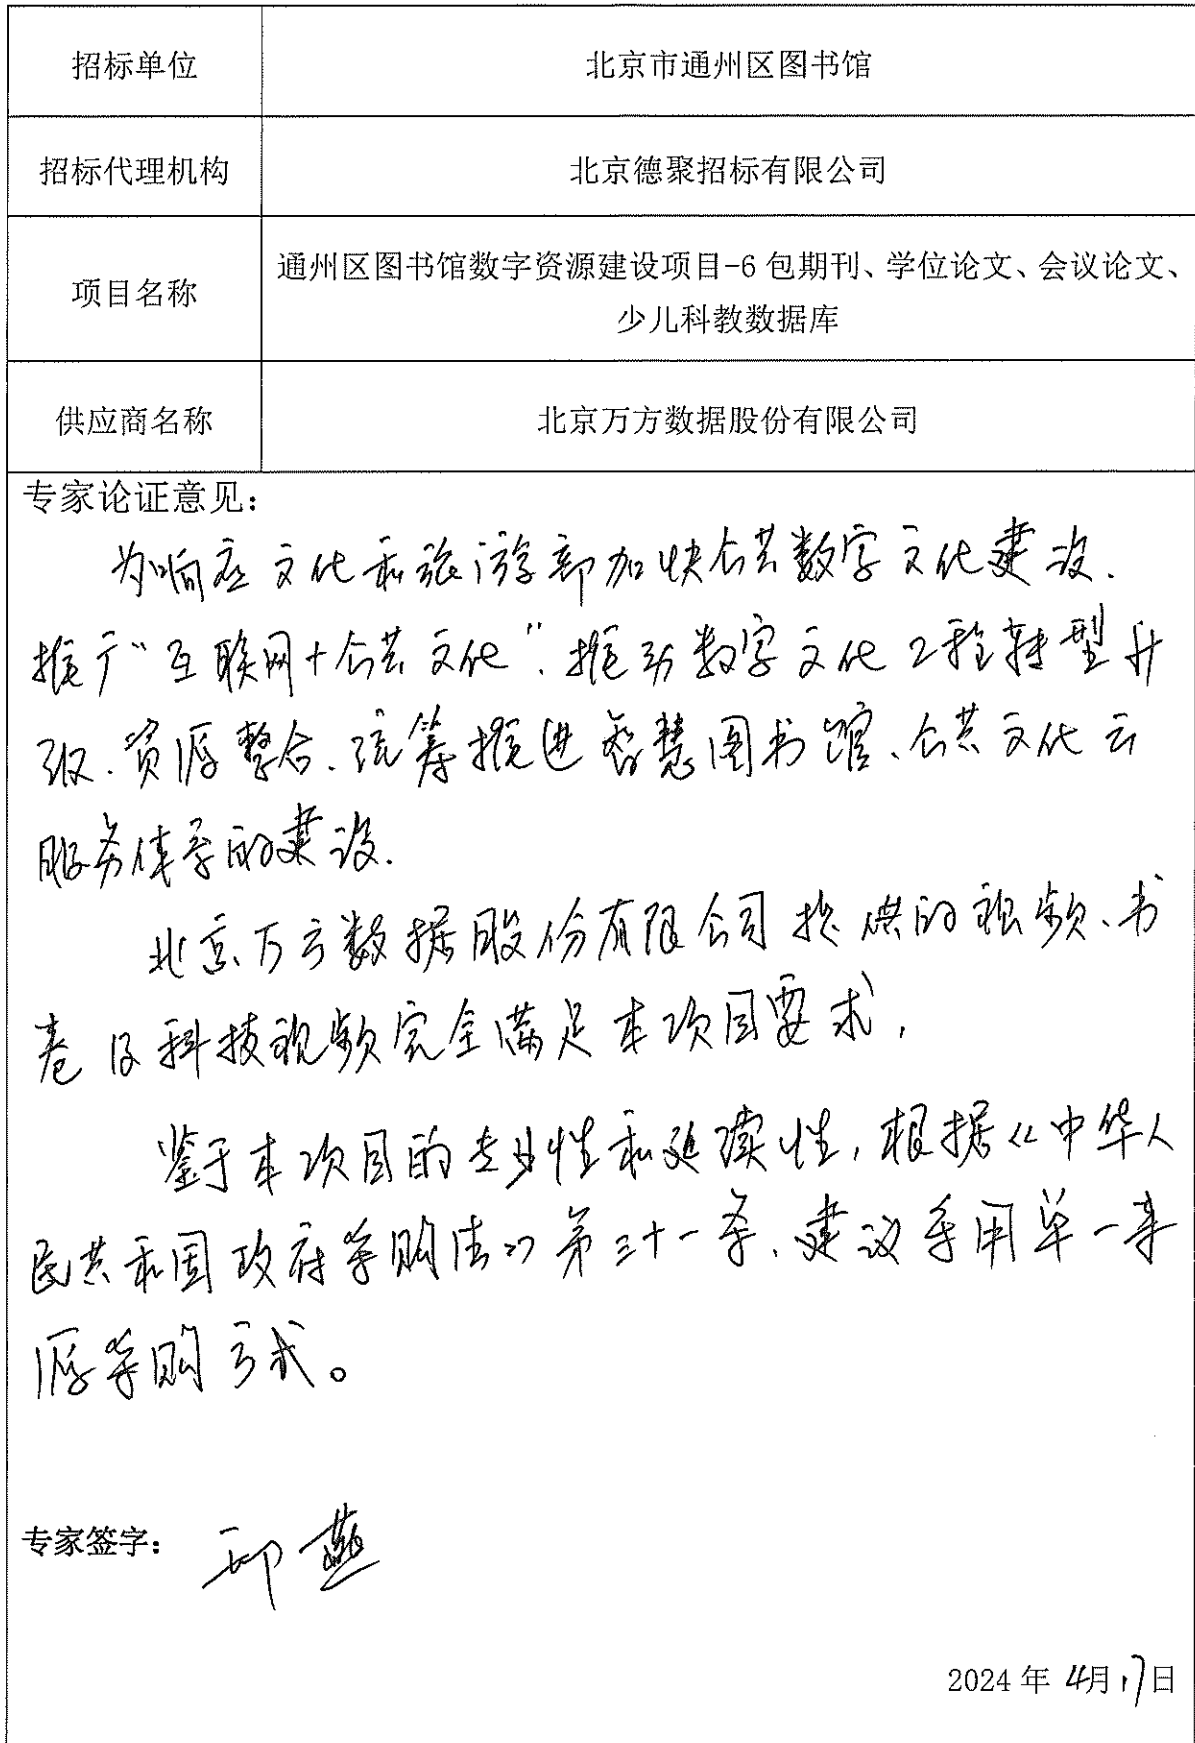 招标单位 北京市通州区图书馆
招标代理机构 北京德聚招标有限公司
项目名称 通州区图书馆数字资源建设项目-6包期刊、学位论文、会议论文、
少儿科教数据库
供应商名称 北京万方数据股份有限公司
专家论证意见：
为响应文化和旅游部加快公共数字文化建设.
推广“互联网+公共文化”.推动数字文化工程转型升
级.资源整合.统筹推进智慧图书馆、公共文化云
服务体系的建设.
北京万方数据股份有限公司提供的视频、书
卷及科技视频完全满足本项目要求,
鉴于本项目的专业性和延续性,根据《中华人
民共和国政府采购法》第三十一条.建议采用单一来
源采购方式。
专家签字： 燕
2024年4月17日